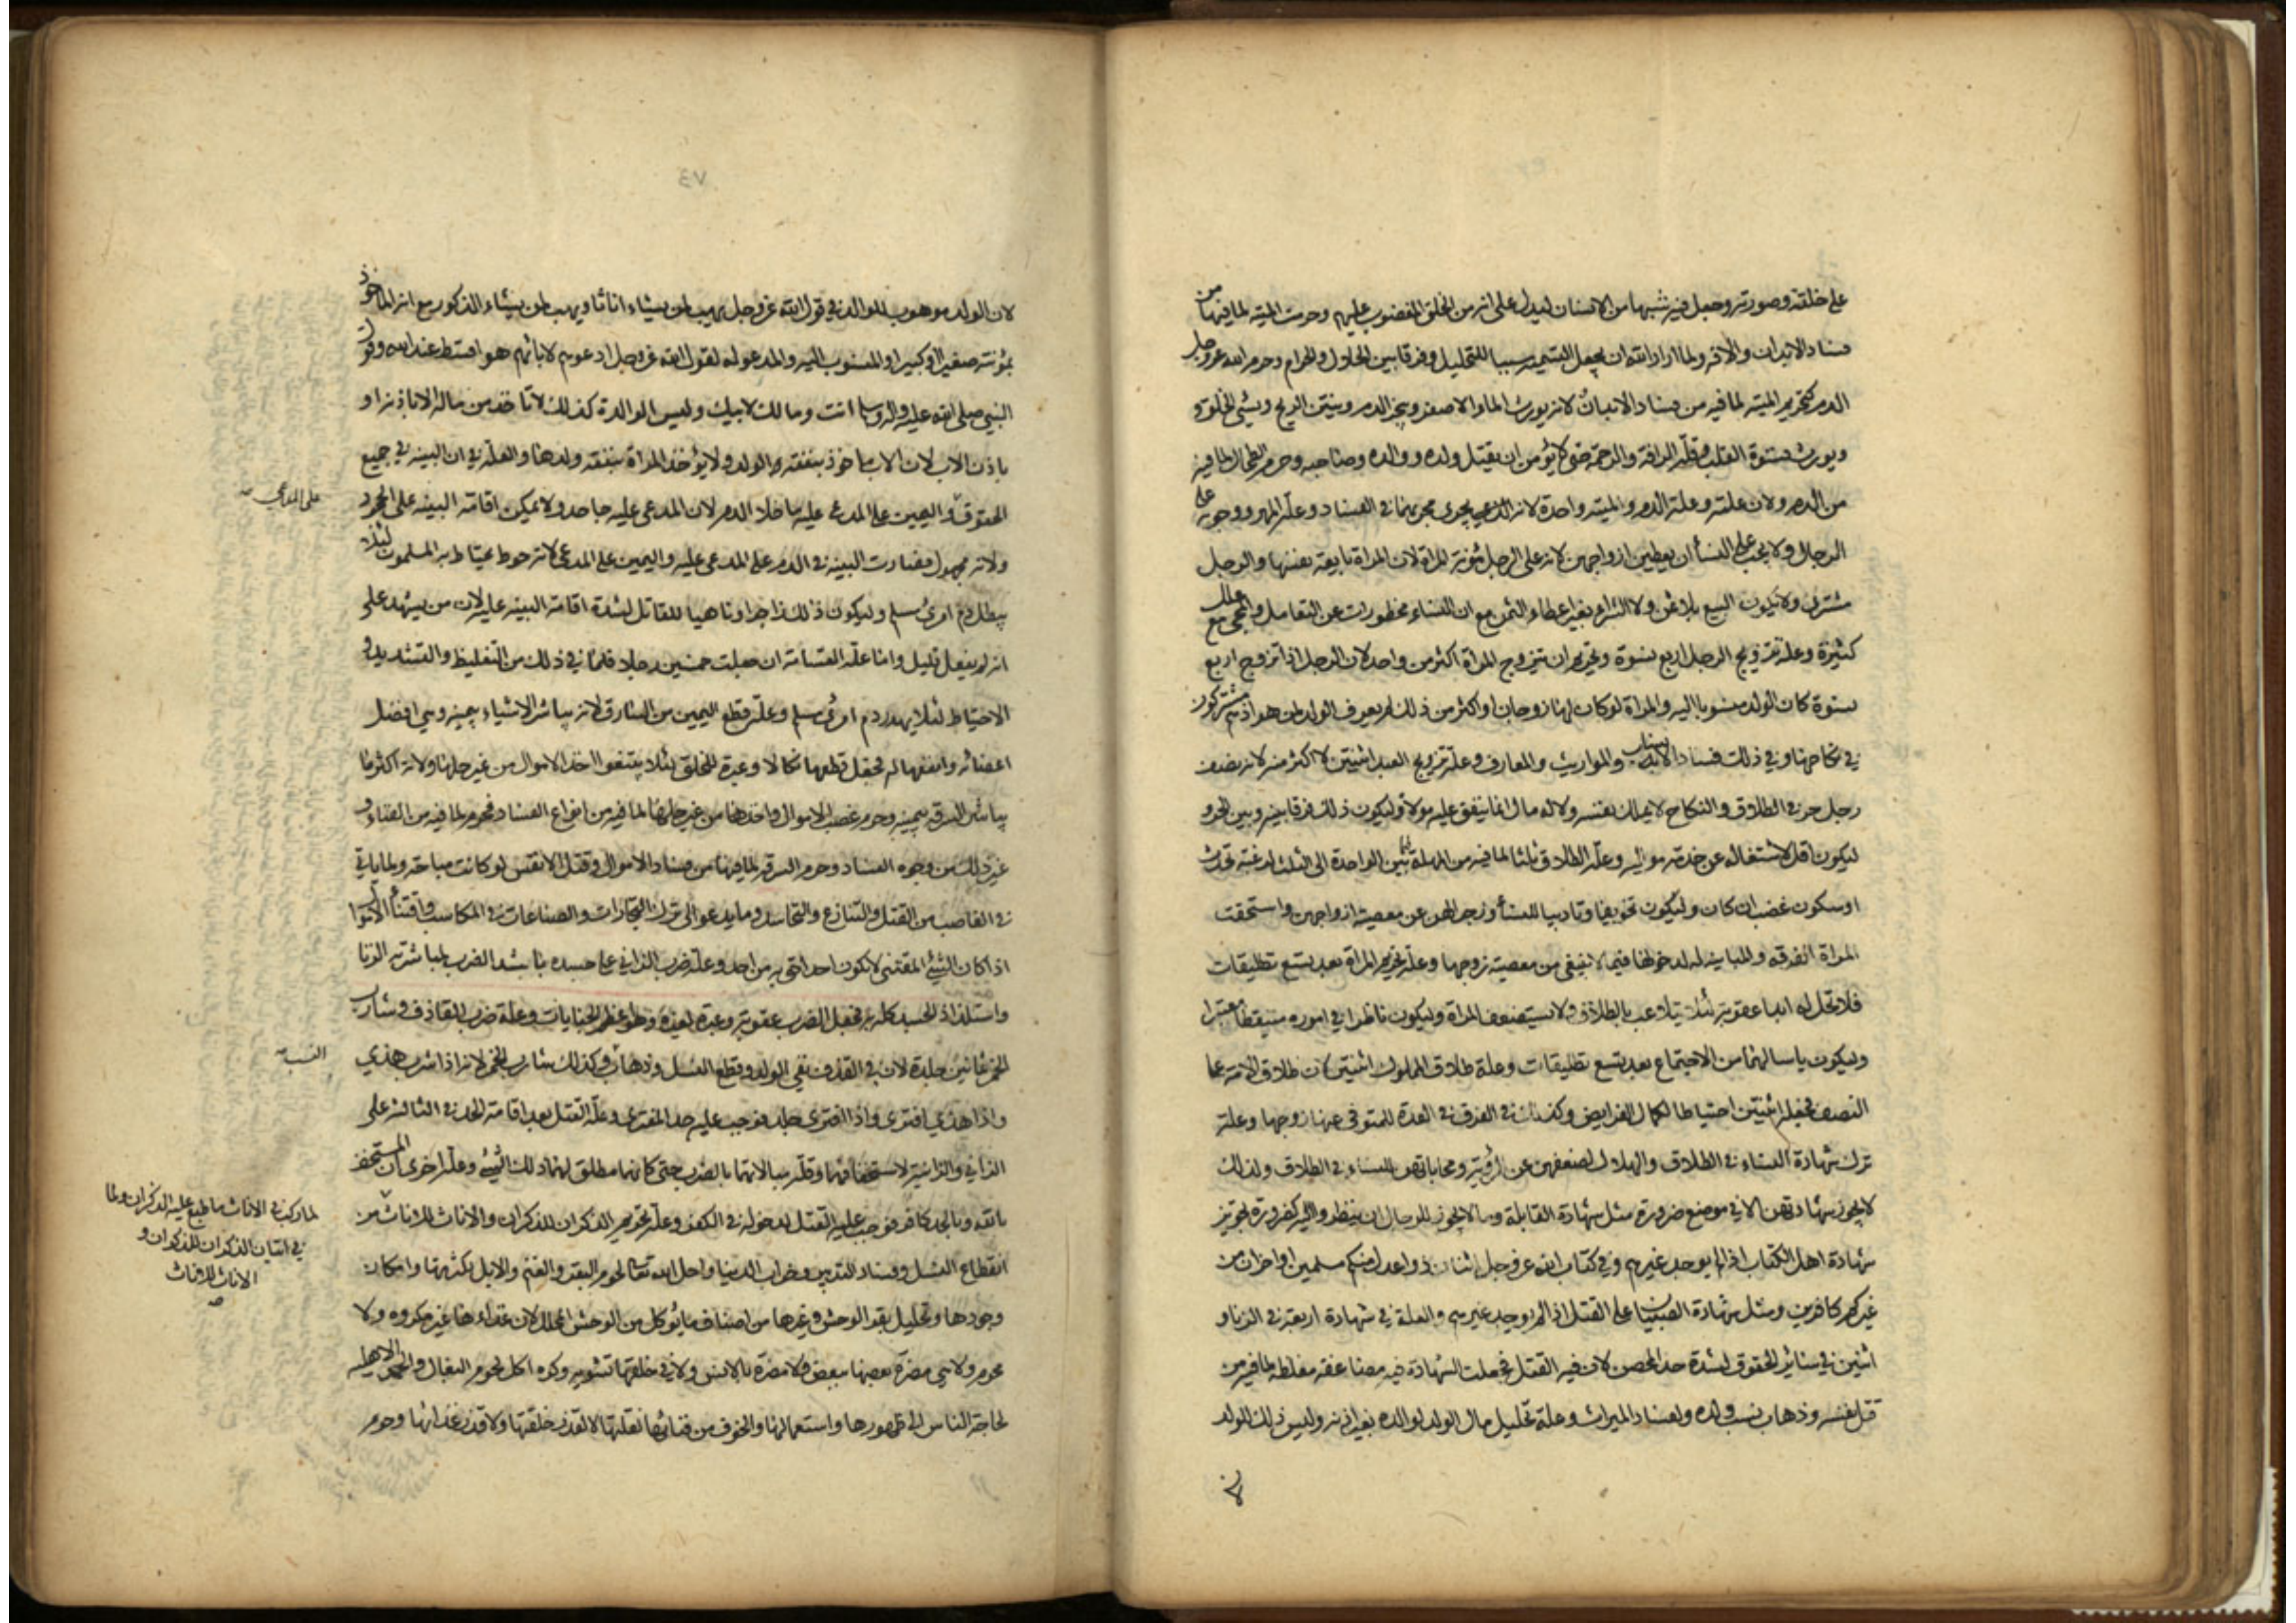 على خلقته وصورته وجعل فيه شبها من الانسان ليدل على انه من الخلق المغضوب عليهم وحرمت الميته لما فيها من
فساد الابدان والآفه ولما اراد الله ان يجعل التسميه سببا للتحليل وفرقا بين الحلال والحرام وحرم الله عز وجل
الدم كتحريم الميته لما فيه من فساد الابدان لانه يورث الماء الاصفر ويبخر الدم وينتن الريح ويسئ الخلق و
ويورث قسوة القلب وقلة الرافة والرحمة حتى لا يؤمن ان يقتل ولده ووالده وصاحبه وحرم الطحال لما فيه
من الدم ولان علته وعلة الدم والميته واحدة لانه يجرى مجريهما فى الفساد وعلة المهر ووجوبه على
الرجال ولا يجب على النسأ ان يعطين ازواجهن لانه على الرجل مؤنة المراة لان المراة بايعة نفسها والرجل
مشترى ولا يكون البيع بلا ثمن ولا الشراء بغير اعطاء الثمن مع ان النساء محظورات عن التعامل والمجى مع علل
كثيرة وعلة تزويج الرجل اربع نسوة وتحريم ان تتزوج المراة اكثر من واحد لان الرجل اذا تزوج اربع
نسوة كان الولد منسوبا اليه والمراة لو كان لها زوجان او اكثر من ذلك لم يعرف الولد لمن هو اذ هم مشتركون
فى نكاحها وفى ذلك فساد الانساب والمواريث والمعارف وعلة تزويج العبد اثنتين لا اكثر منه لانه نصف
رجل حر فى الطلاق والنكاح لا يملك نفسه ولا له مال انما ينفق عليه مولاه وليكون ذلك فرقا بينه وبين الحر و
ليكون اقل لاشتغاله عن خدمة مواليه وعلة الطلاق ثلثا لما فيه من المهلة فيما بين الواحدة الى الثلث لرغبة تحدث
او سكون غضب ان كان وليكون تخويفا وتاديبا للنسأ وزجرا لهن عن معصية ازواجهن واستحقت
المراة الفرقه والمباينه لدخولها فيما لا ينبغى من معصية زوجها وعلة تحريم المراة بعد تسع تطليقات
فلا تحل له ابدا عقوبة لئلا يتلاعب بالطلاق ولا يستضعف المراة وليكون ناظرا فى اموره متيقظا معتبرا
وليكون ياسا لهما من الاجتماع بعد تسع تطليقات وعلة طلاق المملوك اثنتين لان طلاق الامة على
النصف فجعله اثنتين احتياطا لكمال الفرايض وكذلك فى الفرق فى العدة للمتوفى عنها زوجها وعلة
ترك شهادة النساء فى الطلاق والهلال لضعفهن عن الرؤية ومحاباتهن للنساء فى الطلاق ولذلك
لا يجوز شهادتهن الا فى موضع ضرورة مثل شهادة القابلة وما لا يجوز للرجال ان ينظروا اليه كضرورة تجويز
شهادة اهل الكتاب اذا لم يوجد غيرهم وفى كتاب الله عز وجل اثنان ذوا عدل منكم مسلمين او آخران من
غيركم كافرين ومثل شهادة الصبيان على القتل اذا لم يوجد غيرهم والعلة فى شهادة اربعة فى الزنا و
اثنين فى سائر الحقوق لشدة حد المحصن لان فيه القتل فجعلت الشهادة فيه مضاعفه مغلظه لما فيه من
قتل نفسه وذهاب نسب ولده ولفساد الميراث وعلة تحليل مال الولد لوالده بغير اذنه وليس ذلك للولد
لان
٧٤
لان الولد موهوب للوالد فى قول الله عز وجل يهب لمن يشاء اناثا ويهب لمن يشاء الذكور مع انه الماخوذ
بمؤنته صغيرا او كبيرا والمنسوب اليه والمدعو له لقول الله عز وجل ادعوهم لابائهم هو اقسط عند الله وقول
النبى صلى الله عليه واله وسلم انت ومالك لابيك وليس الوالدة كذلك لا تاخذ من ماله الا باذنه او
باذن الاب لان الاب ماخوذ بنفقة الولد ولا يؤخذ المراة بنفقة ولدها والعلة فى ان البينه فى جميع
الحقوق على المدعى واليمين على المدعى عليه ما خلا الدم لان المدعى عليه جاحد ولا يمكن اقامة البينه على الجحود
ولانه مجهول فصارت البينه فى الدم على المدعى عليه واليمين على المدعى لانه حوط يحتاط به المسلمون لئلا
يبطل دم امرئ مسلم وليكون ذلك زاجرا وناهيا للقاتل لشدة اقامة البينه عليه لان من يشهد على
انه لم يفعل قليل واما علة القسامة ان جعلت خمسين رجلا فلما فى ذلك من التغليظ والتشديد و
الاحتياط لئلا يهدر دم امرئ مسلم وعلة قطع اليمين من السارق لانه يباشر الاشياء بيمينه وهى افضل
اعضائه وانفعها له فجعل قطعها نكالا وعبرة للخلق لئلا يبتغوا اخذ الاموال من غير حلها ولانه اكثر ما
يباشر السرقه بيمينه وحرم غصب الاموال واخذها من غير حلها لما فيه من انواع الفساد محرم لما فيه من الفناء و
غير ذلك من وجوه الفساد وحرم السرقه لما فيها من فساد الاموال وقتل الانفس لو كانت مباحة ولما ياتى
فى التغاصب من القتل والتنازع والتحاسد وما يدعو الى ترك التجارات والصناعات فى المكاسب واقتناء الاموال
اذا كان الشئ المقتنى لا يكون احد احق به من احد وعلة ضرب الزانى على جسده باشد الضرب لمباشرته الزنا
واستلذاذ الجسد كله به فجعل الضرب عقوبة وعبرة لغيره وهو اعظم الجنايات وعلة ضرب القاذف وشارب
الخمر ثمانين جلدة لان فى القذف نفى الولد وقطع النسل وذهاب النسب وكذلك شارب الخمر لانه اذا شرب هذى
واذا هذى افترى واذا افترى جلد فوجب عليه حد المفترى وعلة القتل بعد اقامة الحد فى الثالثة على
الزانى والزانية لاستخفافهما وقلة مبالاتهما بالضرب حتى كانهما مطلق لهما ذلك الشئ وعلة اخرى ان المستخف
بالله وبالحد كافر فوجب عليه القتل لدخوله فى الكفر وعلة تحريم الذكران للذكران والاناث للاناث
لما ركب فى الاناث وما طبع عليه الذكران ولما
فى اتيان الذكران للذكران و
الاناث للاناث
من
انقطاع النسل وفساد التدبير وخراب الدنيا واحل الله تعالى لحوم البقر والغنم والابل لكثرتها وامكان
وجودها وتحليل بقر الوحش وغيرها من اصناف ما يؤكل من الوحش المحلل لان غذاءها غير مكروه ولا
محرم ولا هى مضرة بعضها ببعض ولا مضرة بالانس ولا فى خلقتها تشويه وكره اكل لحوم البغال والحمر الاهليه
لحاجة الناس الى ظهورها واستعمالها والخوف من فنائها لقلتها لا لقذر خلقتها ولا قذر غذائها وحرم